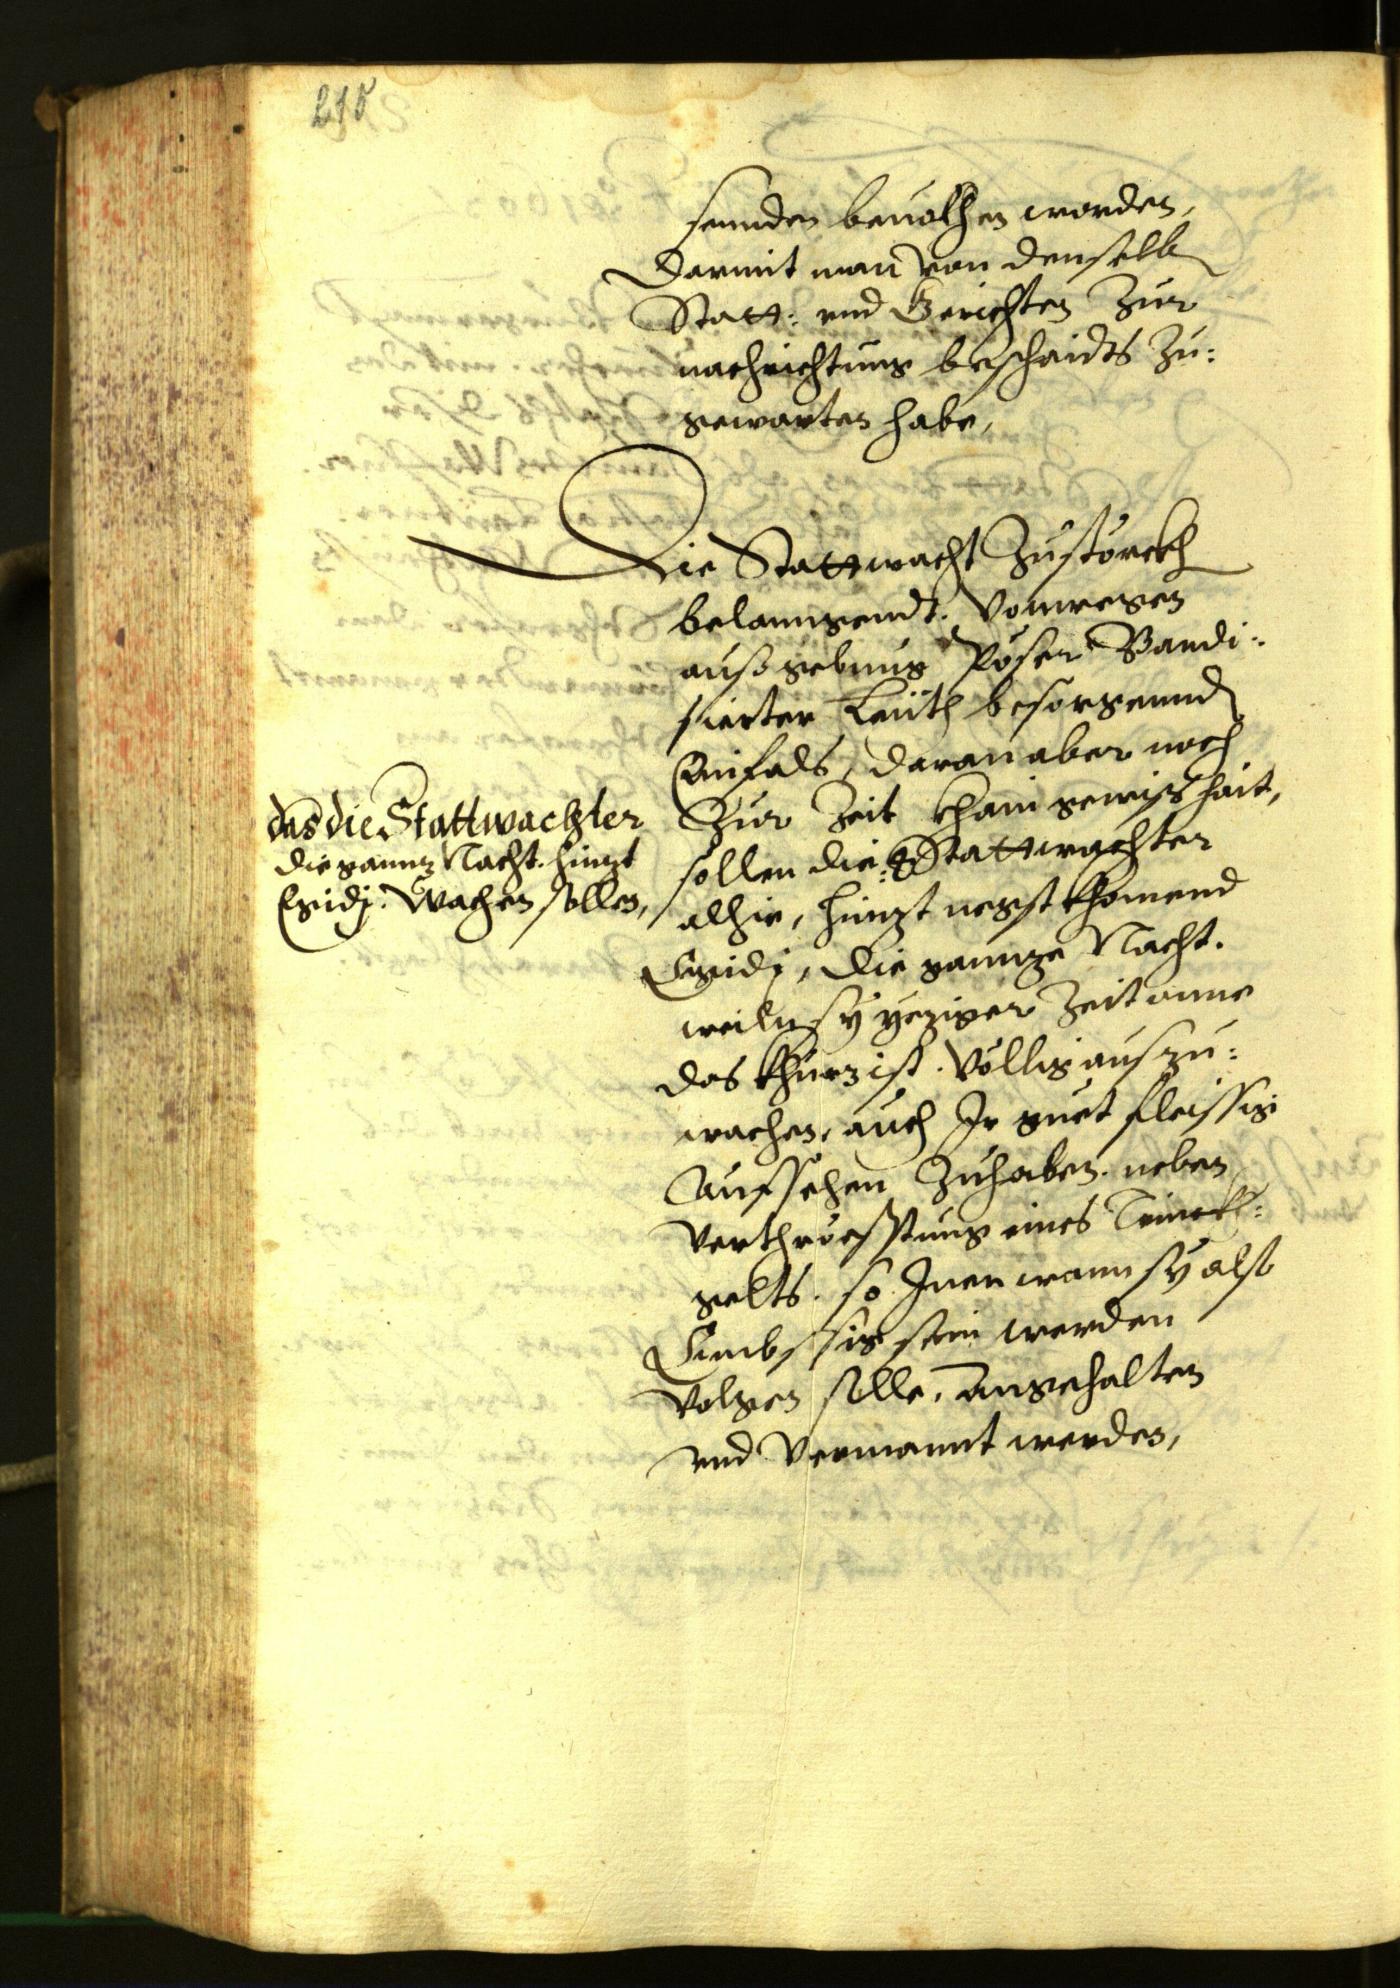 215
sennden beuolhen worden,
Darmit man von denselb
Statt: vnd Gerichten Zur
nachrichtung beschaidts Zu:
gewarten habe,
Die Stattwacht Zustörckh
belanngendt. Vonwegen
außgebung Pöser Bandi:
sierter Leüth besorgennd
Einfals, daran aber noch
Zur Zeit khain gewißhait,
sollen die Stattwachter
alhie, hinzt negstkhomend
Egidj, die gannze Nacht.
weiln sy yeziger Zeit onne
das khurz ist. Völlig auszu:
wachen, auch Ir guet fleissig
Aufsehen Zuhaben. neben
Verthröesstung eines Trinckh:
gelts. so Inen wann sy also
Embssig sein werden
Volgen solle, angehalten
vnd Vermannt werden,
das die Stattwachter
die gannz Nacht. hinzt
Egidj. Wachen sollen,